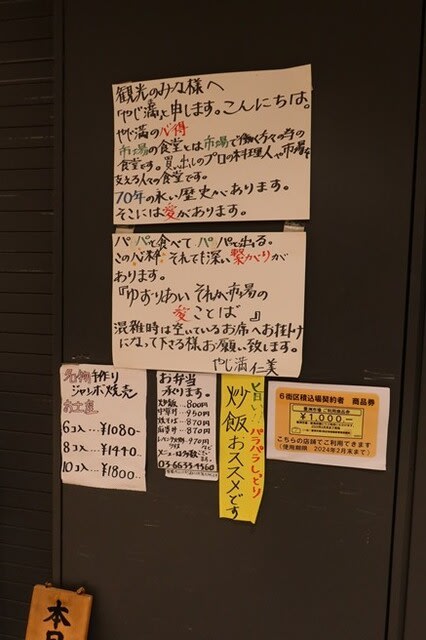 観光のみな様へ
「やじ満」と申します。こんにちは。
やじ満の心得
市場の食堂とは市場で働く方々の為の
食堂です。買い出しのプロの料理人や市場を
支える人々の食堂です。
70年の永い歴史があります。
そこには愛があります。
パパッと食べてパパッと出る。
この心粋 それでも深い繋がりが
あります。
『ゆずりあい それが市場の
愛ことば』
混雑時は空いているお席へお掛け
になって下さる様お願い致します。
やじ満 仁美
名物手作り
ジャンボ焼売
お土産
6コ入…¥1080-
8コ入…¥1440-
10コ入…¥1800-
お弁当
承ります。
炒飯…800円
中華丼…950円
焼そば…870円
麻婆丼…870円
970円
03-6633-4360
旨い!
パラパラしっとり
炒飯おススメです
6街区積込場契約者 商品券
¥1,000
こちらの店舗でご利用できます
(使用期限 2024年2月末まで)
本日